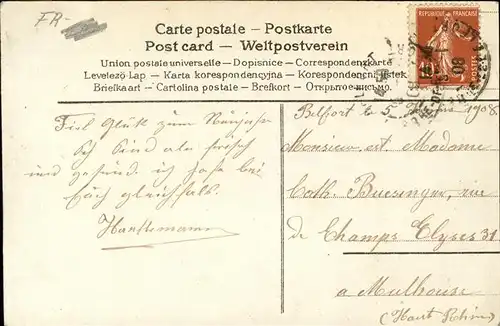 FR-
Carte postale — Postkarte
Post card — Weltpostverein
Union postale universelle – Dopisnice – Correspondenzkarte
Levelező-Lap – Karta korespondencyjna – Korespondencni listek
Briefkaart – Cartolina postale – Brefkort – Открытое письмо.
REPUBLIQUE FRANÇAISE
POSTES
08
Viel Glück zum Neujahr
Ich sind alle frisch
und gesund, ich hoffe bei
Euch gleichfalls.
Hanstimann
Belfort le 1908.
Monsieur et Madame
Cath. Buesinger, rue
de Champs Elyses 31
a Mulhouse
(Haut Rhin)